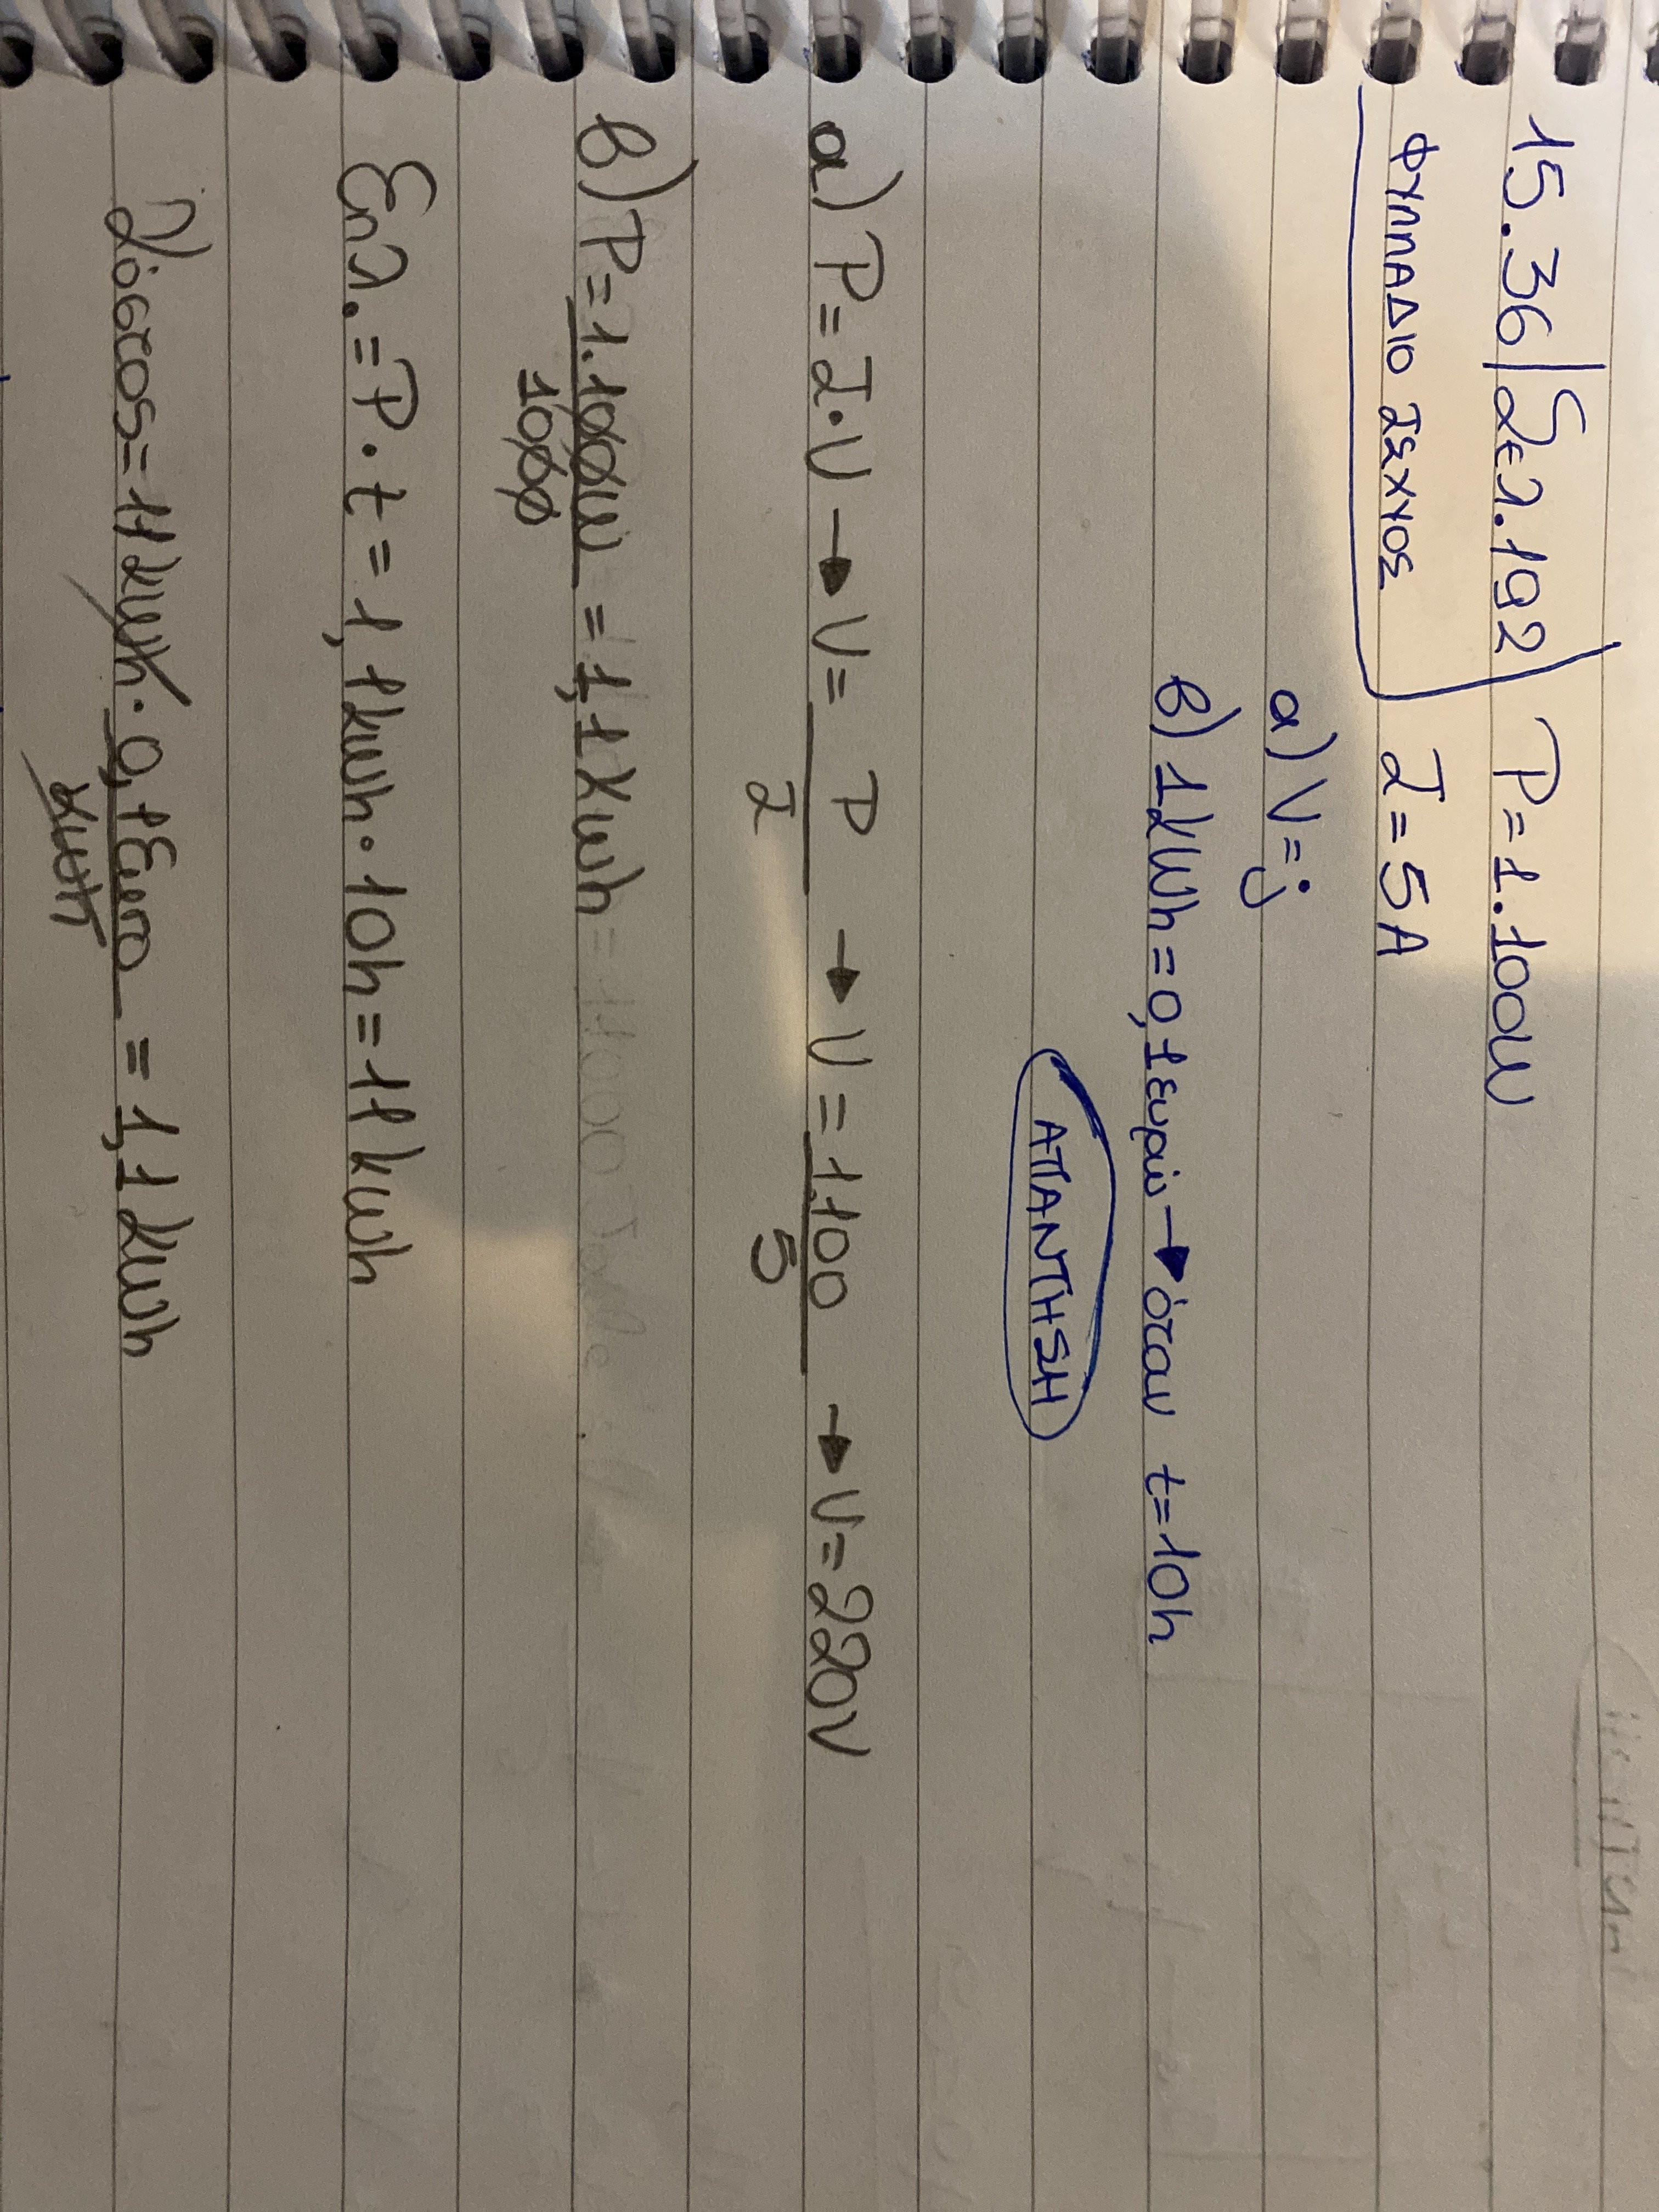 15.36|Σελ.192) P=1.100W
ΦΥΛΛΑΔΙΟ ΙΣΧΥΟΣ I=5A
α) V=;
β) 1kWh=0,1ευρώ→όταν t=10h
ΑΠΑΝΤΗSΗ
α) P=I·V→V=P/I →V=1.100/5 →V=220V
β) P=1.100W/1000 = 1,1kwh
Eηλ.=P·t=1,1kwh·10h=11kwh
Κόστος=11kwh·0,1Euro/kwh = 1,1kwh